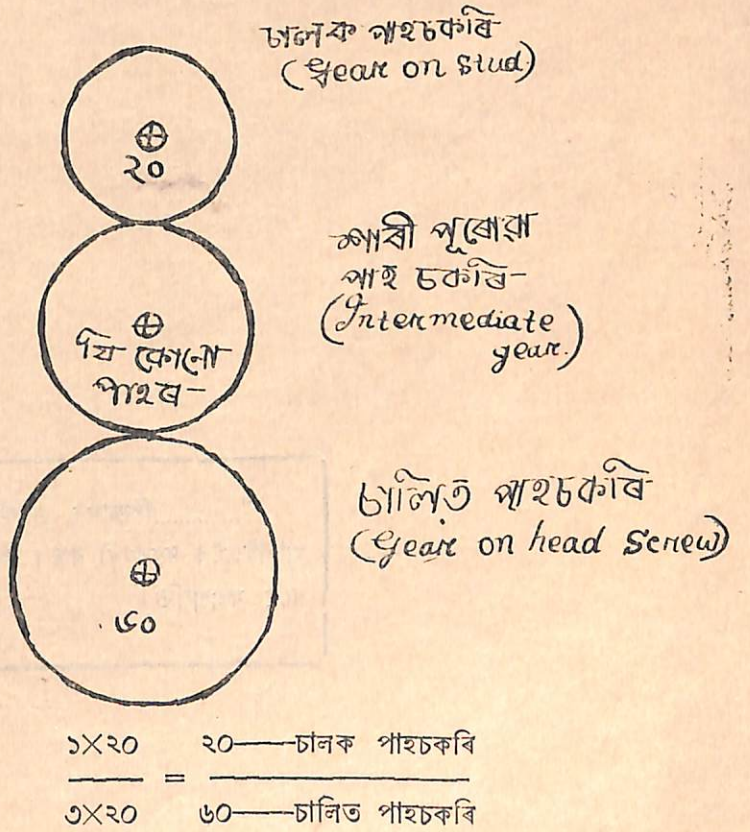 চালক পাহচকৰি
(Gear on stud)
২০
শাৰী পূৰোৱা
পাহ চকৰি
(Intermediate
gear.)
যি কোনো
পাহৰ
চালিত পাহচকৰি
(Gear on head Screw)
৬০
১X২০ ২০——চালক পাহচকৰি
=
৩X২০ ৬০——চালিত পাহচকৰি